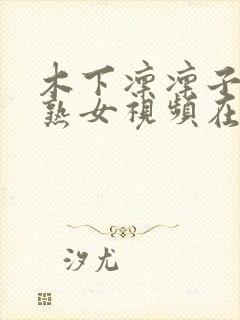 木下凛凛子
熟女視頻在
汐尤